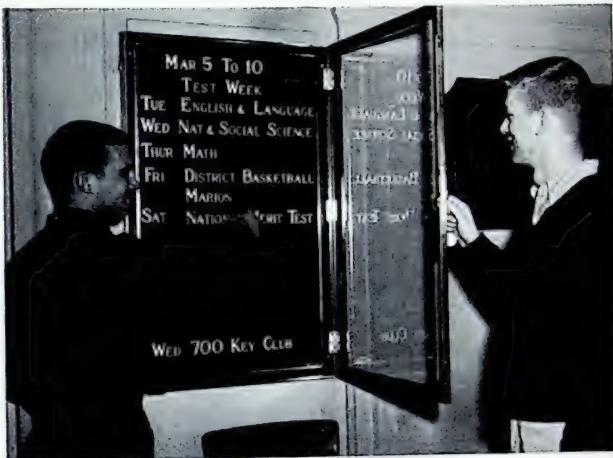 MAR 5 TO 10
TEST WEEK
TUE ENGLISH & LANGUAGE
WED NAT & SOCIAL SCIENCE
THUR MATH
FRI DISTRICT BASKETBALL
MARION
SAT NATIONAL MERIT TEST
WED 700 KEY CLUB